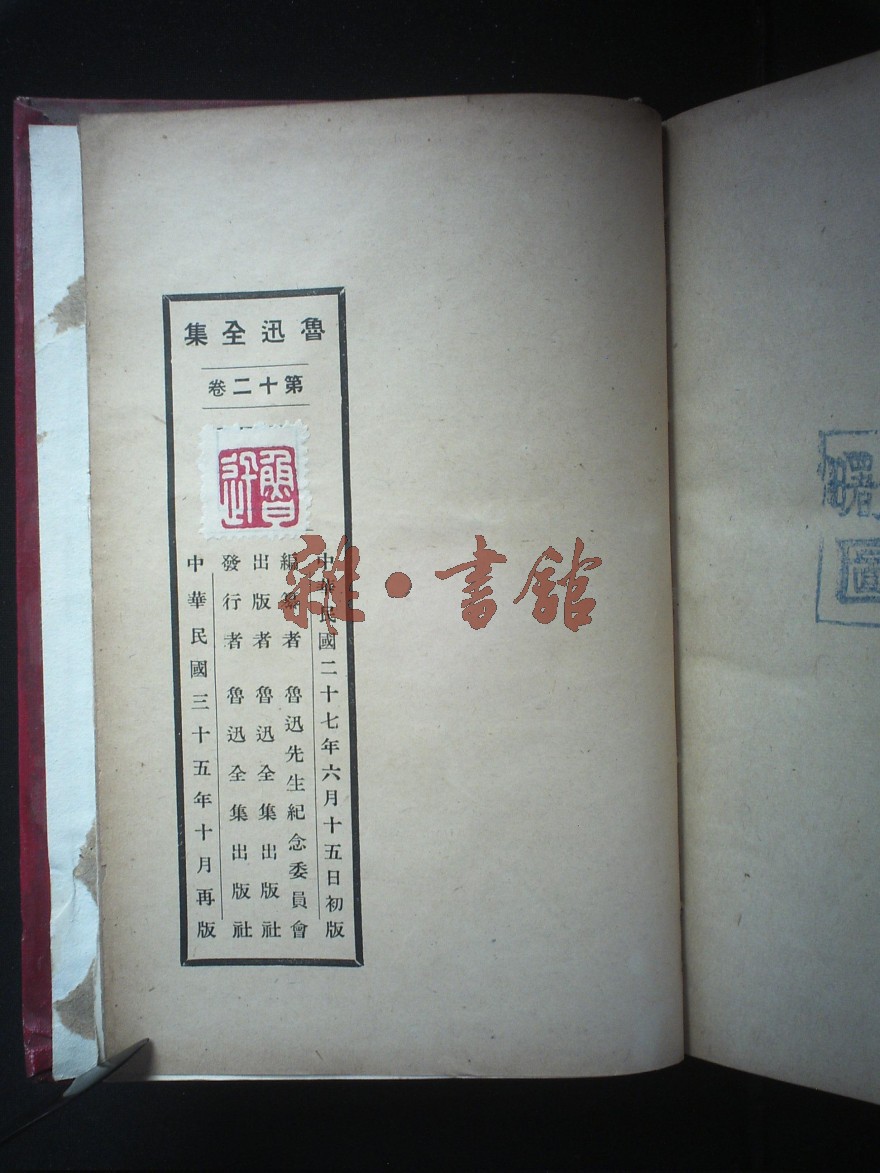 魯迅全集
第十二卷
魯迅
中華民國二十七年六月十五日初版
編纂者 魯迅先生紀念委員會
出版者 魯迅全集出版社
發行者 魯迅全集出版社
中華民國三十五年十月再版
雜·書館
曙
圖